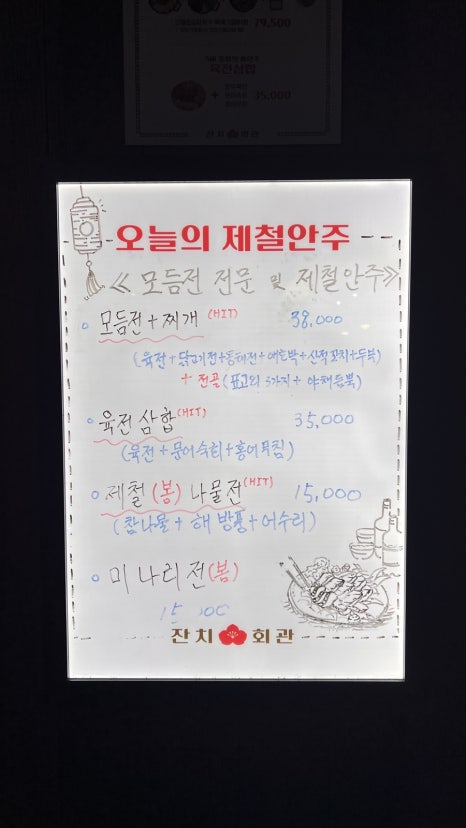 79,500
육전삼합
+ 35,000
잔치 회관
오늘의 제철안주
≪ 모듬전 전문 및 제철안주≫
모듬전 + 찌개 (HIT) 38,000
(육전 + 닭고기전 + 동태전 + 애호박 + 산적꼬치 + 두부)
+ 전골 (표고외 3가지 + 야채듬뿍)
육전 삼합 (HIT) 35,000
(육전 + 문어숙회 + 홍어무침)
제철 (봄) 나물전 (HIT) 15,000
(참나물 + 해방풍 + 어수리)
미나리전 (봄)
잔치 회관